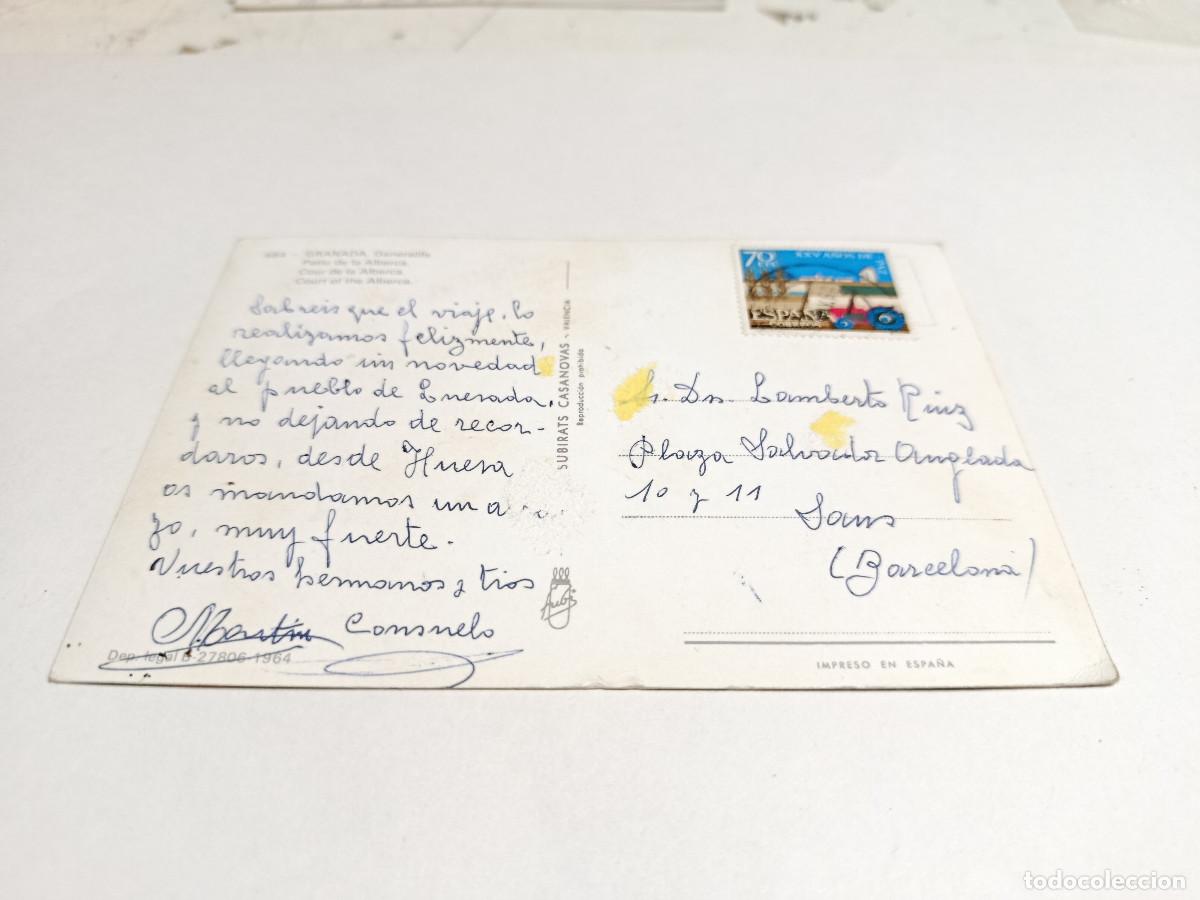 GRANADA. Generalife
Patio de la Alberca.
Cour de la Alberca.
Court of the Alberca.
Sabreis que el viaje, lo
realizamos felizmente,
llegando sin novedad
al pueblo de Quesada,
y no dejando de recor-
daros, desde Huesa
os mandamos un a
zo, muy fuerte.
Vuestros hermanos y tios
Martin Consuelo
Dep. legal B-27806-1964
SUBIRATS CASANOVAS - VALENCIA
Reproducción prohibida
70 CTS
XXV AÑOS DE PAZ
ESPAÑA
CORREOS
Sr. Dn. Lamberto Ruiz
Plaza Salvador Anglada
10 y 11
Sans
(Barcelona)
IMPRESO EN ESPAÑA
todocoleccion